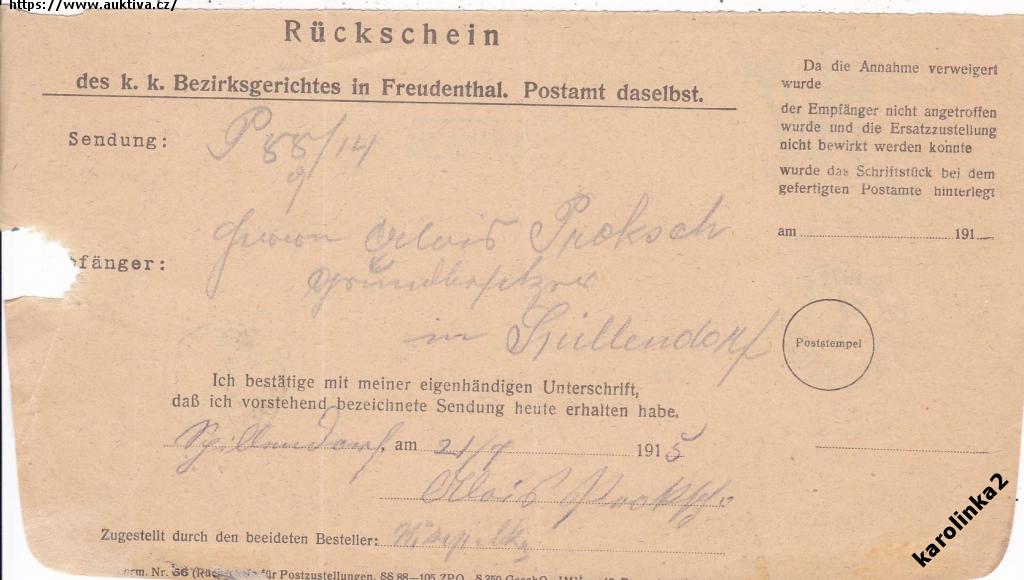 https://www.auktiva.cz/
Rückschein
des k. k. Bezirksgerichtes in Freudenthal. Postamt daselbst.
Sendung: P 88/14
9
Herrn Alois Proksch
fänger: Grundbesitzer
in Spillendorf
Ich bestätige mit meiner eigenhändigen Unterschrift,
daß ich vorstehend bezeichnete Sendung heute erhalten habe.
Spillendorf, am 21/7 1915
Alois Proksch
Zugestellt durch den beeideten Besteller:
orm. Nr. 36 (Rückschein für Postzustellungen, §§ 88—105 ZPO., § 350
Da die Annahme verweigert
wurde
der Empfänger nicht angetroffen
wurde und die Ersatzzustellung
nicht bewirkt werden konnte
wurde das Schriftstück bei dem
gefertigten Postamte hinterlegt
am 191
Poststempel
karolinka2